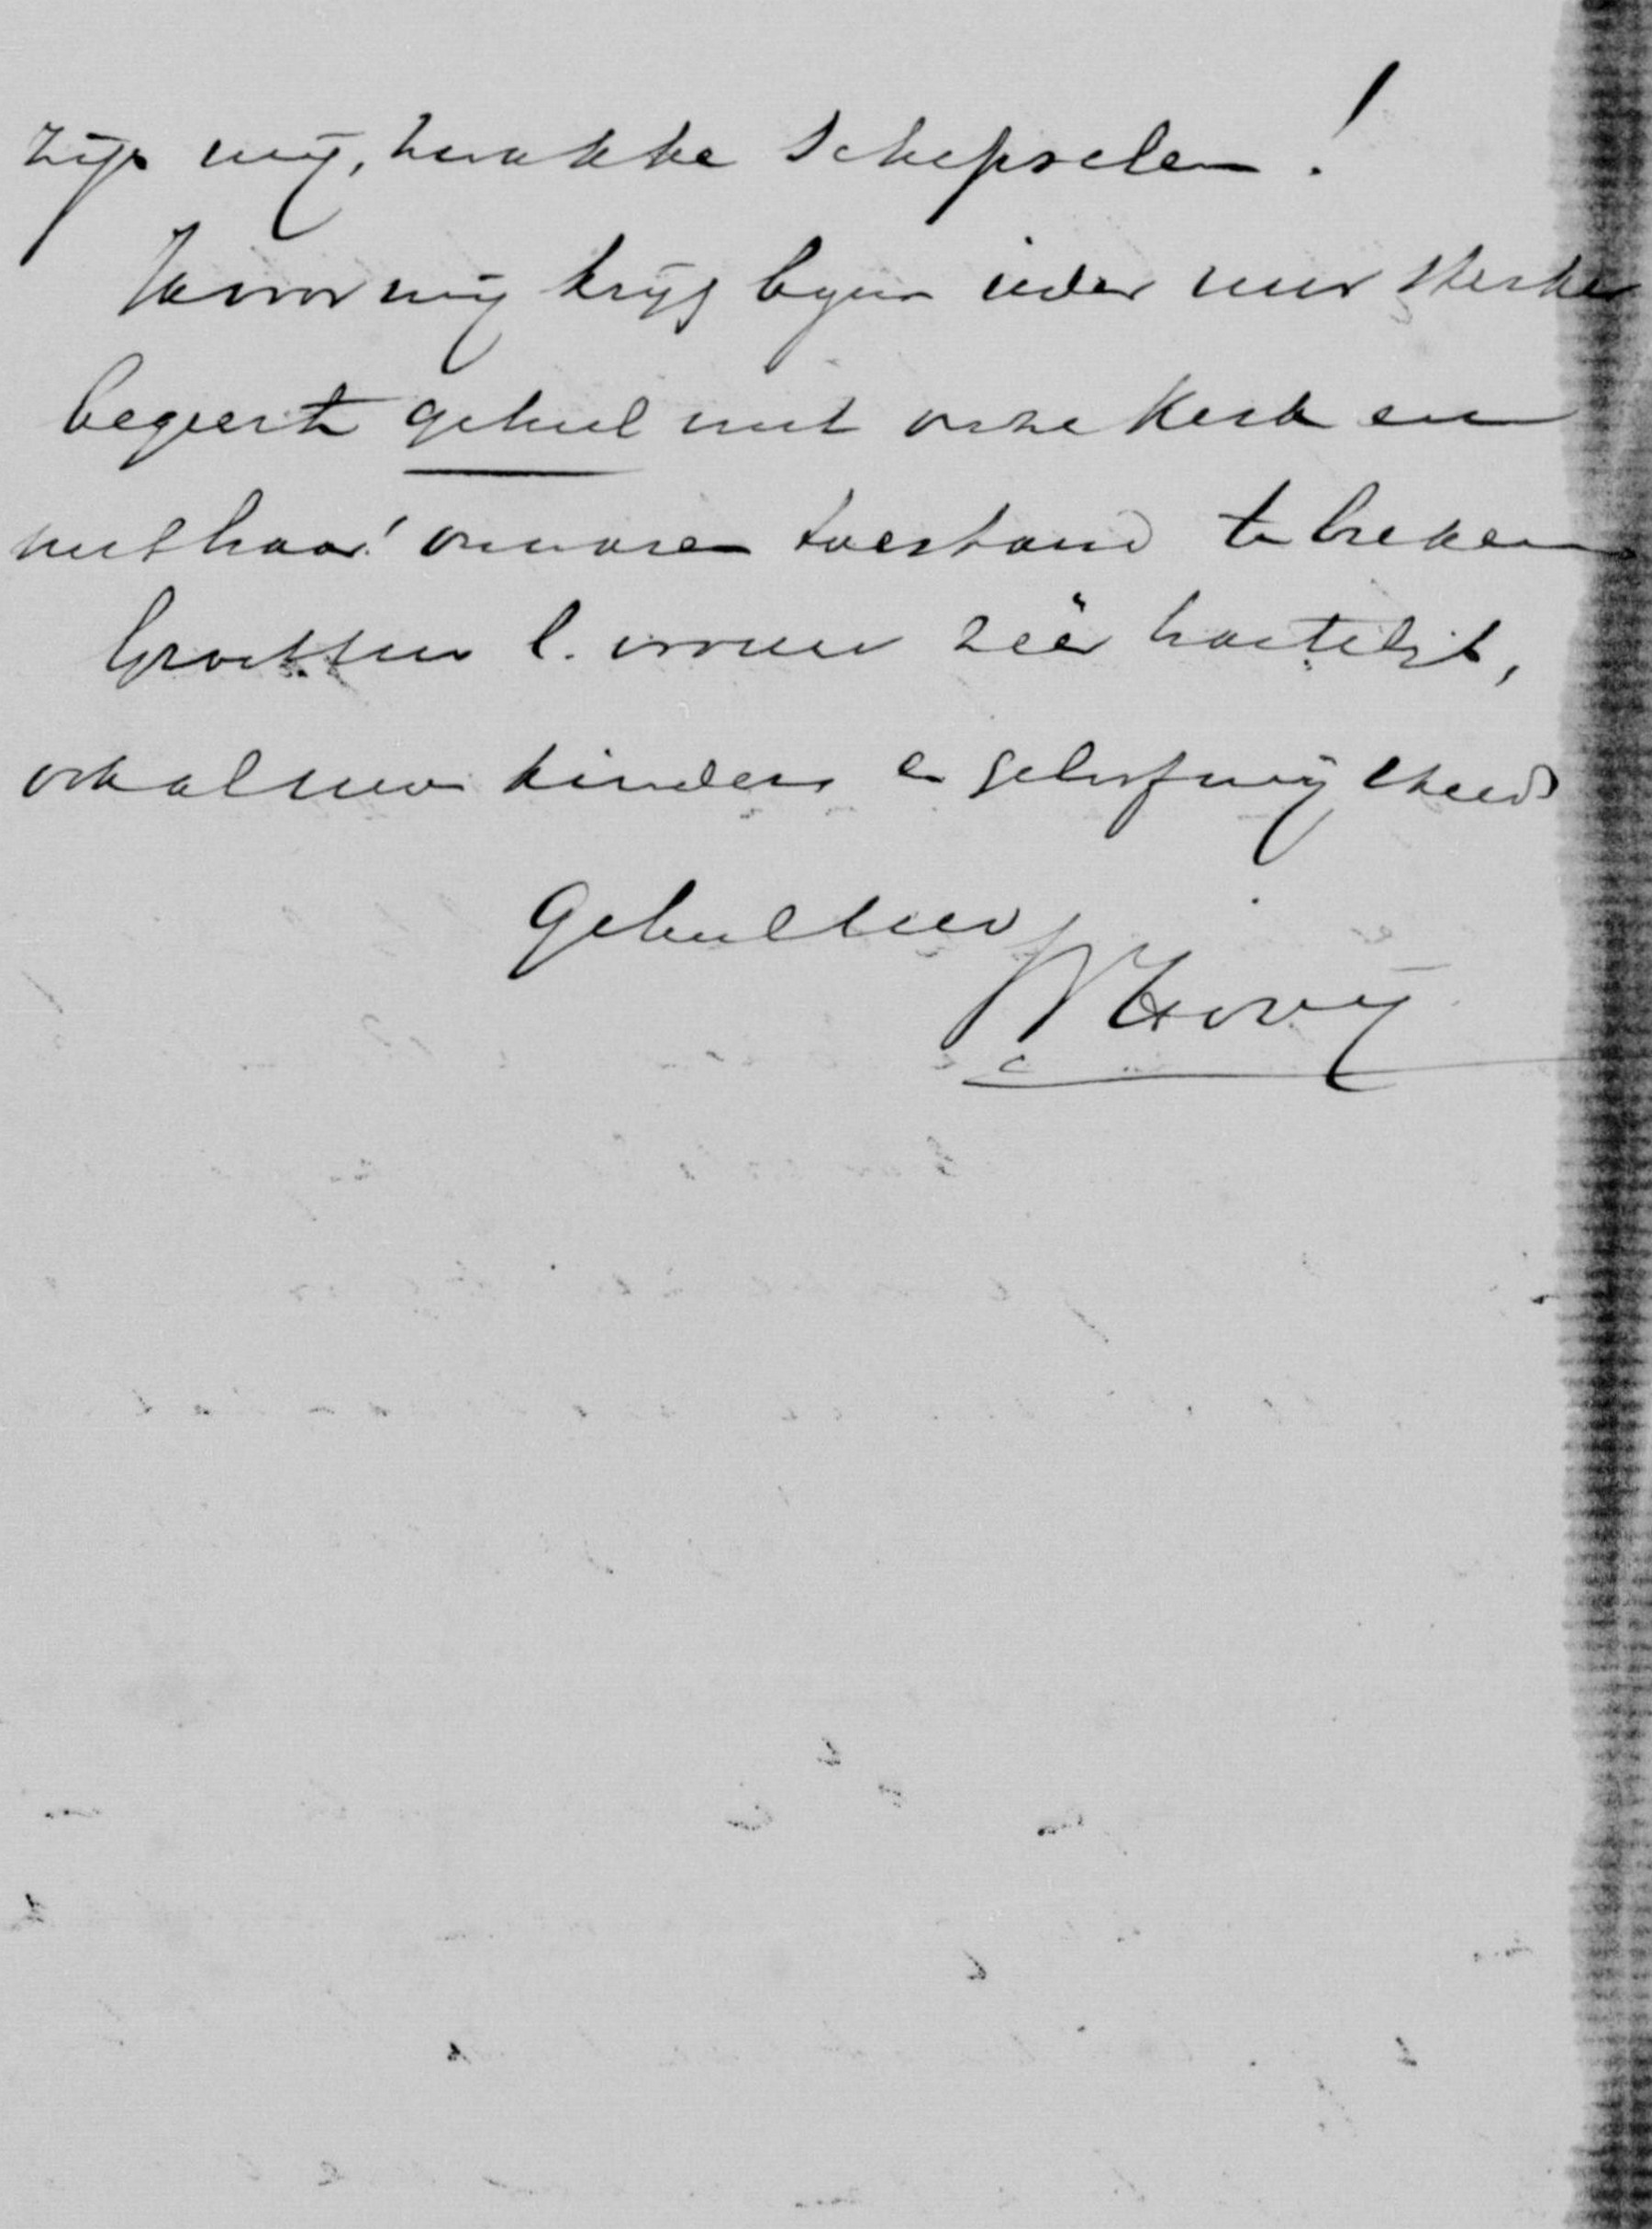 zijn wij, zwakke schepselen!
Ik voor mij krijg bijna ieder uur sterker
begeerte geheel met onze Kerk en
met haar onwaren toestand te breken
Groet uw l. vrouw zéér hartelijk,
ook al uw kinders en geloof mij steeds
Geheel uw
WHovij